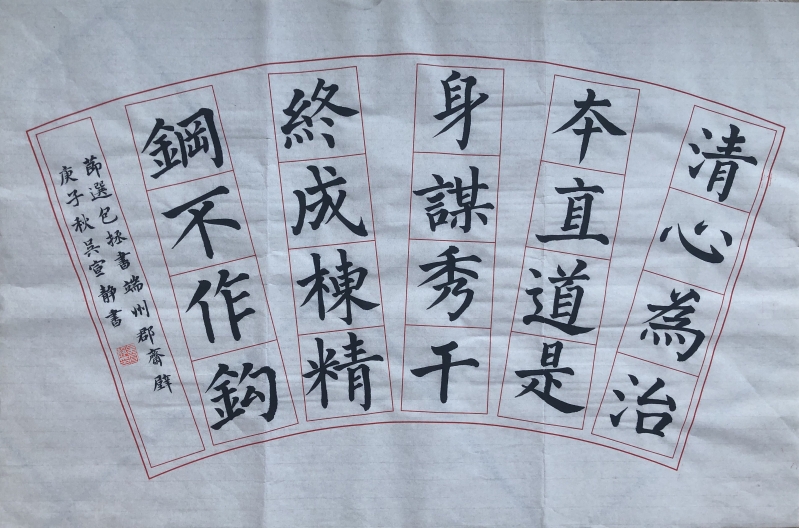 清心為治
本直道是
身謀秀干
終成棟精
鋼不作鈎
節選包拯書端州郡齋壁
庚子秋吳宣靜書